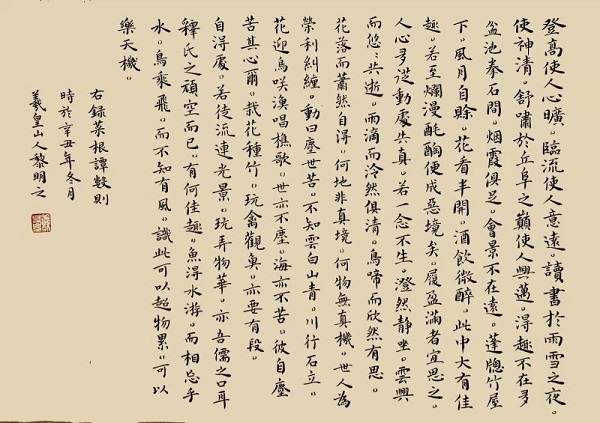 登高使人心曠。臨流使人意遠。讀書於雨雪之夜。
使神清。舒嘯於丘阜之巔使人興邁。得趣不在多
盆池拳石間。烟霞俱足。會景不在遠。蓬牕竹屋
下。風月自賒。花看半開。酒飲微醉。此中大有佳
趣。若至爛漫酕醄便成惡境矣。履盈滿者宜思之。
人心多從動處失真。若一念不生。澄然靜坐。雲興
而悠〻共逝。雨滴而泠然俱清。鳥啼而欣然有思。
花落而蕭然自得。何地非真境。何物無真機。世人為
榮利糾纏。動曰塵世苦。不知雲白山青。川行石立。
花迎鳥咲漁唱樵歌。世亦不塵。海亦不苦。彼自塵
苦其心爾。栽花種竹。玩禽觀魚。亦要有段
自得處。若徒流連光景。玩弄物華。亦吾儒之口耳
釋氏之頑空而已。有何佳趣。魚得水游。而相忘乎
水。鳥乘飛。而不知有風。識此可以超物累。可以
樂天機。
右錄菜根譚數則
時於辛丑年冬月
羲皇山人黎明之